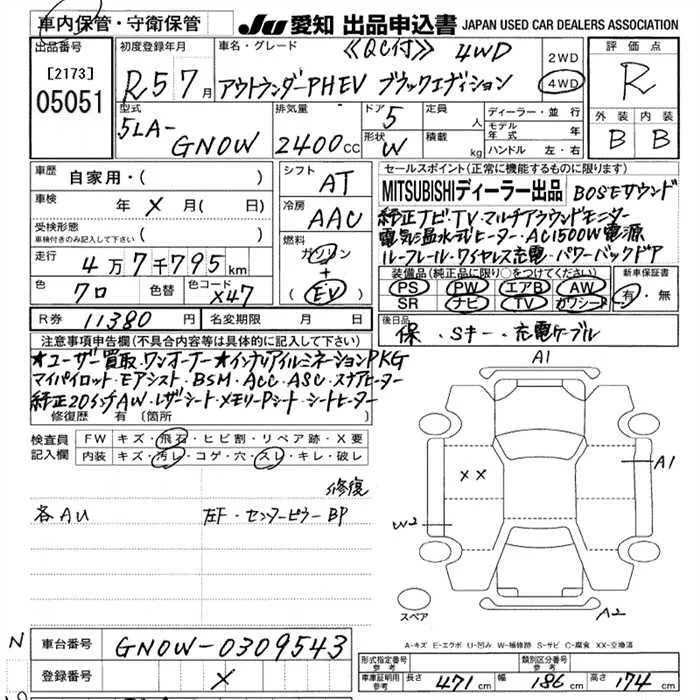 車内保管・守衛保管
JU 愛知 出品申込書 JAPAN USED CAR DEALERS ASSOCIATION
出品番号
[2173]
05051
初度登録年月
R5 7月
車名・グレード
《QC付》 4WD
アウトランダーPHEV ブラックエディション
2WD
4WD
評価点
R
型式
5LA-
GN0W
排気量
2400 CC
ドア
5
形状
W
定員
人
積載
kg
ディーラー・並行
モデル年式 年
ハンドル 左・右
外装 内装
B B
車歴
自家用・( )
車検
年 × 月( 日)
受検形態
車検付きのみ記入して下さい
( )
走行
4万7千795km
色
クロ
色替
色コード
X47
シフト
AT
冷房
AAC
燃料
ガソリン
+
(EV)
セールスポイント(正常に機能するものに限ります)
MITSUBISHIディーラー出品 BOSEサウンド
純正ナビ・TV・マルチアラウンドモニター
電気温水式ヒーター・AC1500W電源
ルーフレール・ワイヤレス充電・パワーバックドア
装備品(純正品に限り○をつけてください)
PS PW エアB AW
SR ナビ TV カワシート
新車保証書
有・無
R券 11380 円
名変期限 月 日
後日品
保・Sキー・充電ケーブル
注意事項申告欄(不具合内容等は具体的に記入して下さい)
★ユーザー買取・ワンオーナー★インテリアイルミネーションPKG
マイパイロット・Eアシスト・BSM・ACC・ASC・ステアヒーター
純正20インチAW・レザーシート・メモリーPシート・シートヒーター
修復歴 有〔箇所 〕
検査員
記入欄
FW キズ・飛石・ヒビ割・リペア跡・X要
内装 キズ・汚レ・コゲ・穴・スレ・キレ・破レ
修復
各AU 左F・センターピラーBP
A1
A1
XX
W2
A2
スペア
A-キズ E-エクボ U-凹み W-補修跡 S-サビ C-腐食 XX-交換済
N
車台番号 GN0W-0309543
登録番号 ×
形式指定番号
参考
類別区分番号
参考
車庫証明用
参考
長さ 471 cm 幅 186 cm 高さ 174 cm